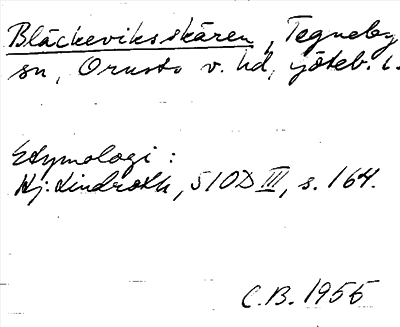 Bläckeviksskären, Tegneby
sn, Orusts v. hd, Göteb. l.
Etymologi:
Hj. Lindroth, SIOD III, s. 164.
C.B. 1955